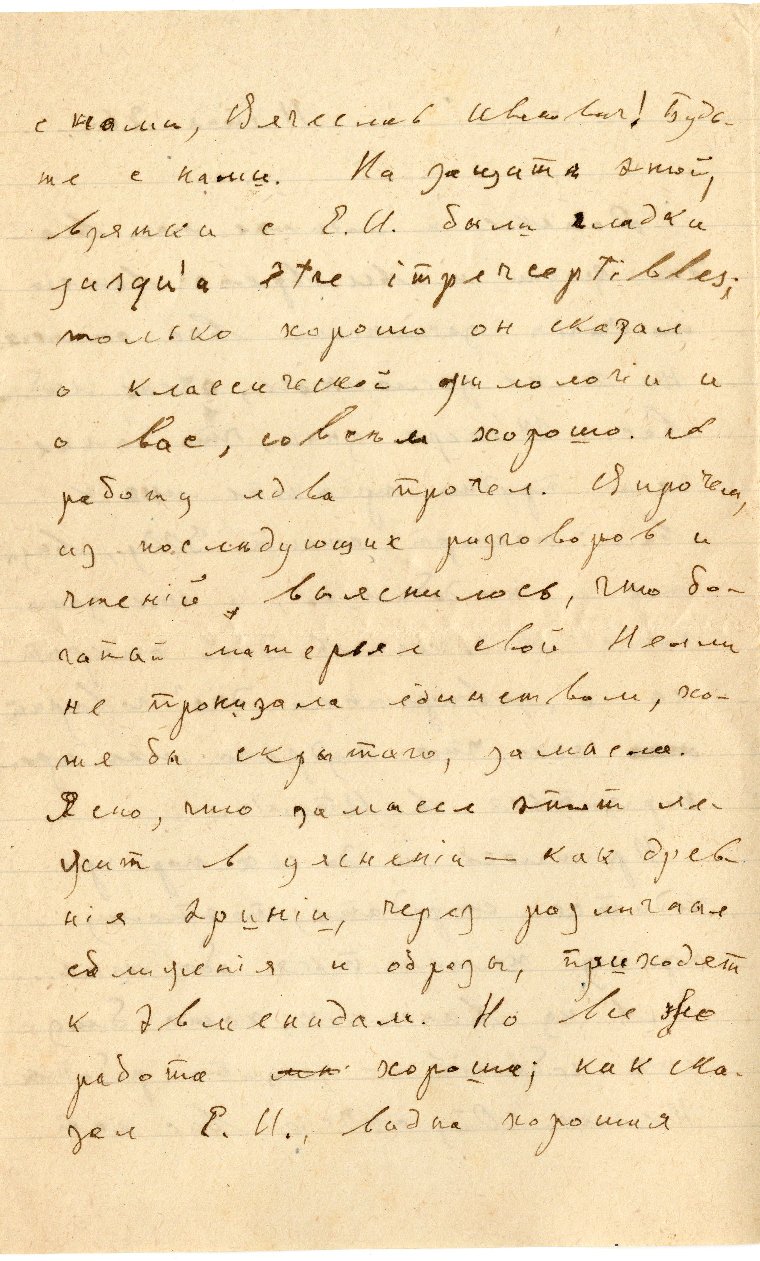 с нами, Вячеслав Иванович! Будь-
те с нами. На защите эной,
взятки с Е. И. были гладки
jusqu'à être imperceptibles;
только хорошо он сказал
о классической филологіи и
о Вас, совсем хорошо. А
работу едва прочел. Впрочем,
из последующих разговоров и
чтеній, выяснилось, что бо-
гатый матерьял свой Нелли
не пронизала единством, хо-
тя бы скрытаго, замысла.
Ясно, что замысел этот ле-
жит в уясненіи — как древ-
нія Эриніи, через различные
сближенія и образы, приходят
к Эвменидам. Но все же
работа хороша; как ска-
зал Е. И., видна хорошая